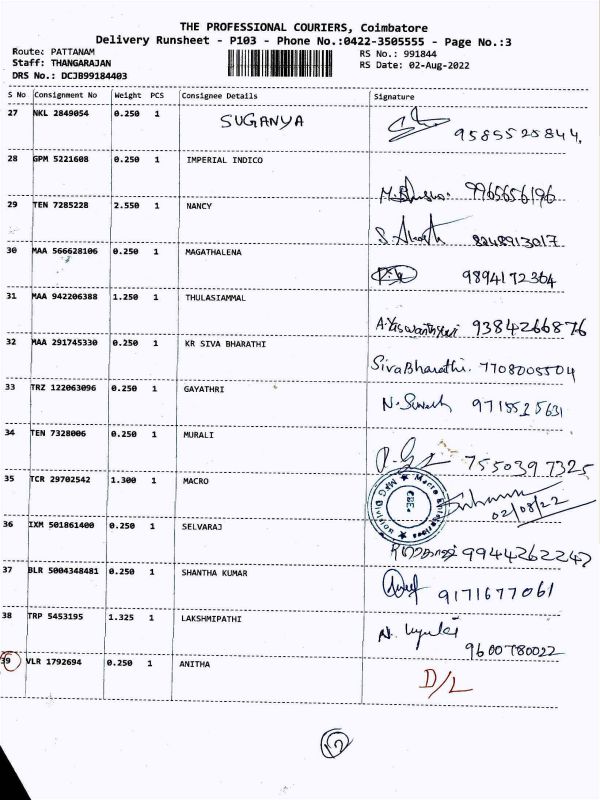 THE PROFESSIONAL COURIERS, Coimbatore
Delivery Runsheet - P103 - Phone No.:0422-3505555 - Page No.:3
Route: PATTANAM RS No.: 991844
Staff: THANGARAJAN RS Date: 02-Aug-2022
DRS No.: DCJB99184403
S No Consignment No Weight PCS Consignee Details Signature
27 NKL 2849054 0.250 1 SUGANYA 9585525844,
28 GPM 5221608 0.250 1 IMPERIAL INDICO 9965656196
29 TEN 7285228 2.550 1 NANCY S. 8248913017
30 MAA 566628106 0.250 1 MAGATHALENA 9894172364
31 MAA 942206388 1.250 1 THULASIAMMAL 9384266876
32 MAA 291745330 0.250 1 KR SIVA BHARATHI Siva Bharathi. 7708005504
33 TRZ 122063096 0.250 1 GAYATHRI N. Suresh 9715525631
34 TEN 7328006 0.250 1 MURALI 7550397325
35 TCR 29702542 1.300 1 MACRO 02/08/22
36 IXM 501861400 0.250 1 SELVARAJ 9944262247
37 BLR 5004348481 0.250 1 SHANTHA KUMAR 9171677061
38 TRP 5453195 1.325 1 LAKSHMIPATHI N. 9600780022
39 VLR 1792694 0.250 1 ANITHA D/L
12